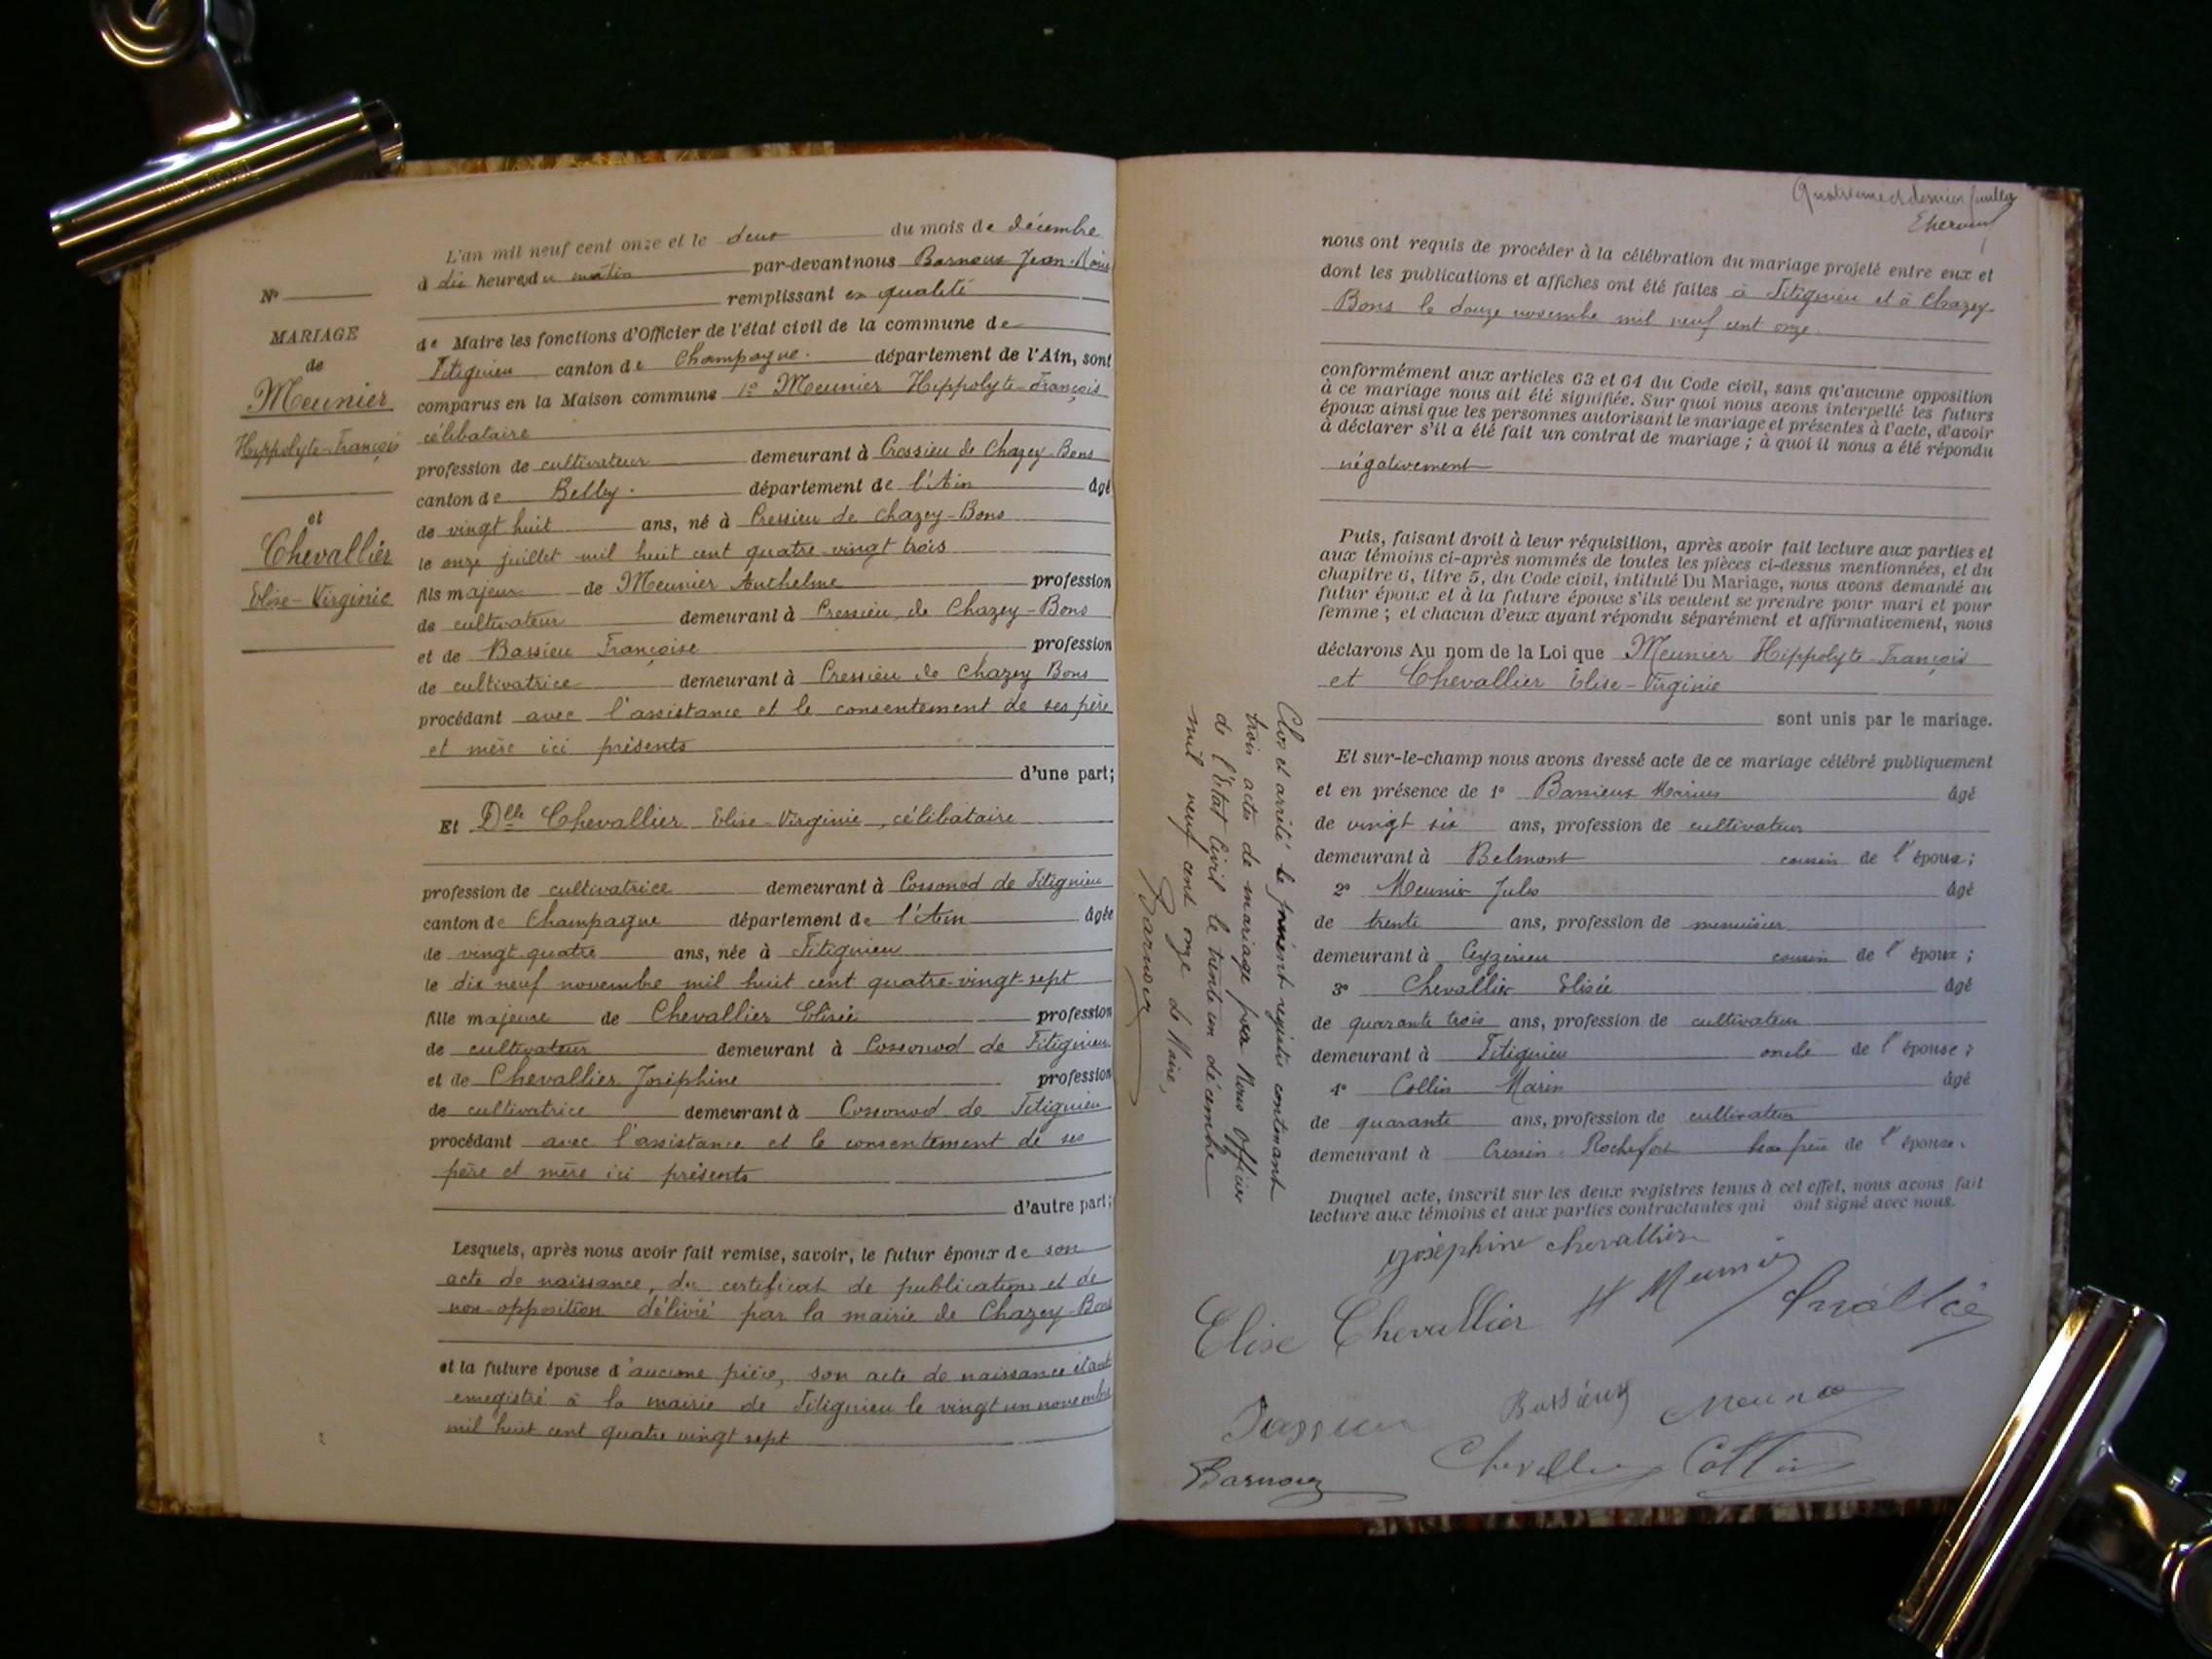 N°
MARIAGE
de
Meunier
Hippolyte-François
et
Chevallier
Elise-Virginie
L'an mil neuf cent onze et le deux du mois de décembre
à dix heures du matin par-devant nous Barnoux Jean-Marie
remplissant en qualité
de Maire les fonctions d'Officier de l'état civil de la commune de
Fitignieu canton de Champagne. département de l'Ain, sont
comparus en la Maison commune 1° Meunier Hippolyte-François
célibataire
profession de cultivateur demeurant à Cressieu de Chazey-Bons
canton de Belley. département de l'Ain âgé
de vingt huit ans, né à Cressieu de Chazey-Bons
le onze juillet mil huit cent quatre-vingt trois
fils majeur de Meunier Anthelme profession
de cultivateur demeurant à Cressieu, de Chazey-Bons
et de Bassieu Françoise profession
de cultivatrice demeurant à Cressieu de Chazey Bons
procédant avec l'assistance et le consentement de ses père
et mère ici présents
d'une part;
Et Dlle Chevallier Elise-Virginie, célibataire
profession de cultivatrice demeurant à Cossonod de Fitignieu
canton de Champagne département de l'Ain âgée
de vingt-quatre ans, née à Fitignieu
le dix neuf novembre mil huit cent quatre-vingt-sept
fille majeure de Chevallier Elisée profession
de cultivateur demeurant à Cossonod de Fitignieu
et de Chevallier Joséphine profession
de cultivatrice demeurant à Cossonod de Fitignieu
procédant avec l'assistance et le consentement de ses
père et mère ici présents
d'autre part;
Lesquels, après nous avoir fait remise, savoir, le futur époux de son
acte de naissance, du certificat de publications et de
non-opposition délivré par la mairie de Chazey-Bons
et la future épouse d'aucune pièce, son acte de naissance étant
enregistré à la mairie de Fitignieu le vingt un novembre
mil huit cent quatre vingt sept
Quatrième et dernier feuillet
nous ont requis de procéder à la célébration du mariage projeté entre eux et
dont les publications et affiches ont été faites à Fitignieu et à Chazey-
Bons le douze novembre mil neuf cent onze.
conformément aux articles 63 et 64 du Code civil, sans qu'aucune opposition
à ce mariage nous ait été signifiée. Sur quoi nous avons interpellé les futurs
époux ainsi que les personnes autorisant le mariage et présentes à l'acte, d'avoir
à déclarer s'il a été fait un contrat de mariage ; à quoi il nous a été répondu
négativement
Puis, faisant droit à leur réquisition, après avoir fait lecture aux parties et
aux témoins ci-après nommés de toutes les pièces ci-dessus mentionnées, et du
chapitre 6, titre 5, du Code civil, intitulé Du Mariage, nous avons demandé au
futur époux et à la future épouse s'ils veulent se prendre pour mari et pour
femme ; et chacun d'eux ayant répondu séparément et affirmativement, nous
déclarons Au nom de la Loi que Meunier Hippolyte-François
et Chevallier Elise-Virginie
sont unis par le mariage.
Et sur-le-champ nous avons dressé acte de ce mariage célébré publiquement
et en présence de 1° Bassieux Marius âgé
de vingt six ans, profession de cultivateur
demeurant à Belmont cousin de l'époux;
2° Meunier Jules âgé
de trente ans, profession de menuisier
demeurant à Ceyzerieu cousin de l'époux;
3° Chevallier Elisée âgé
de quarante trois ans, profession de cultivateur
demeurant à Fitignieu oncle de l'épouse;
4° Collin Marin âgé
de quarante ans, profession de cultivateur
demeurant à Cressin-Rochefort beau frère de l'épouse.
Duquel acte, inscrit sur les deux registres tenus à cet effet, nous avons fait
lecture aux témoins et aux parties contractantes qui ont signé avec nous.
Joséphine Chevallier
Elise Chevallier H Meunier
Bassieux Meunier
Chevallier Collin
Barnoux
Clos et arrêté le présent registre contenant
trois actes de mariage par Nous Officier
de l'Etat Civil le trente un décembre
mil neuf cent onze Le Maire,
Barnoux